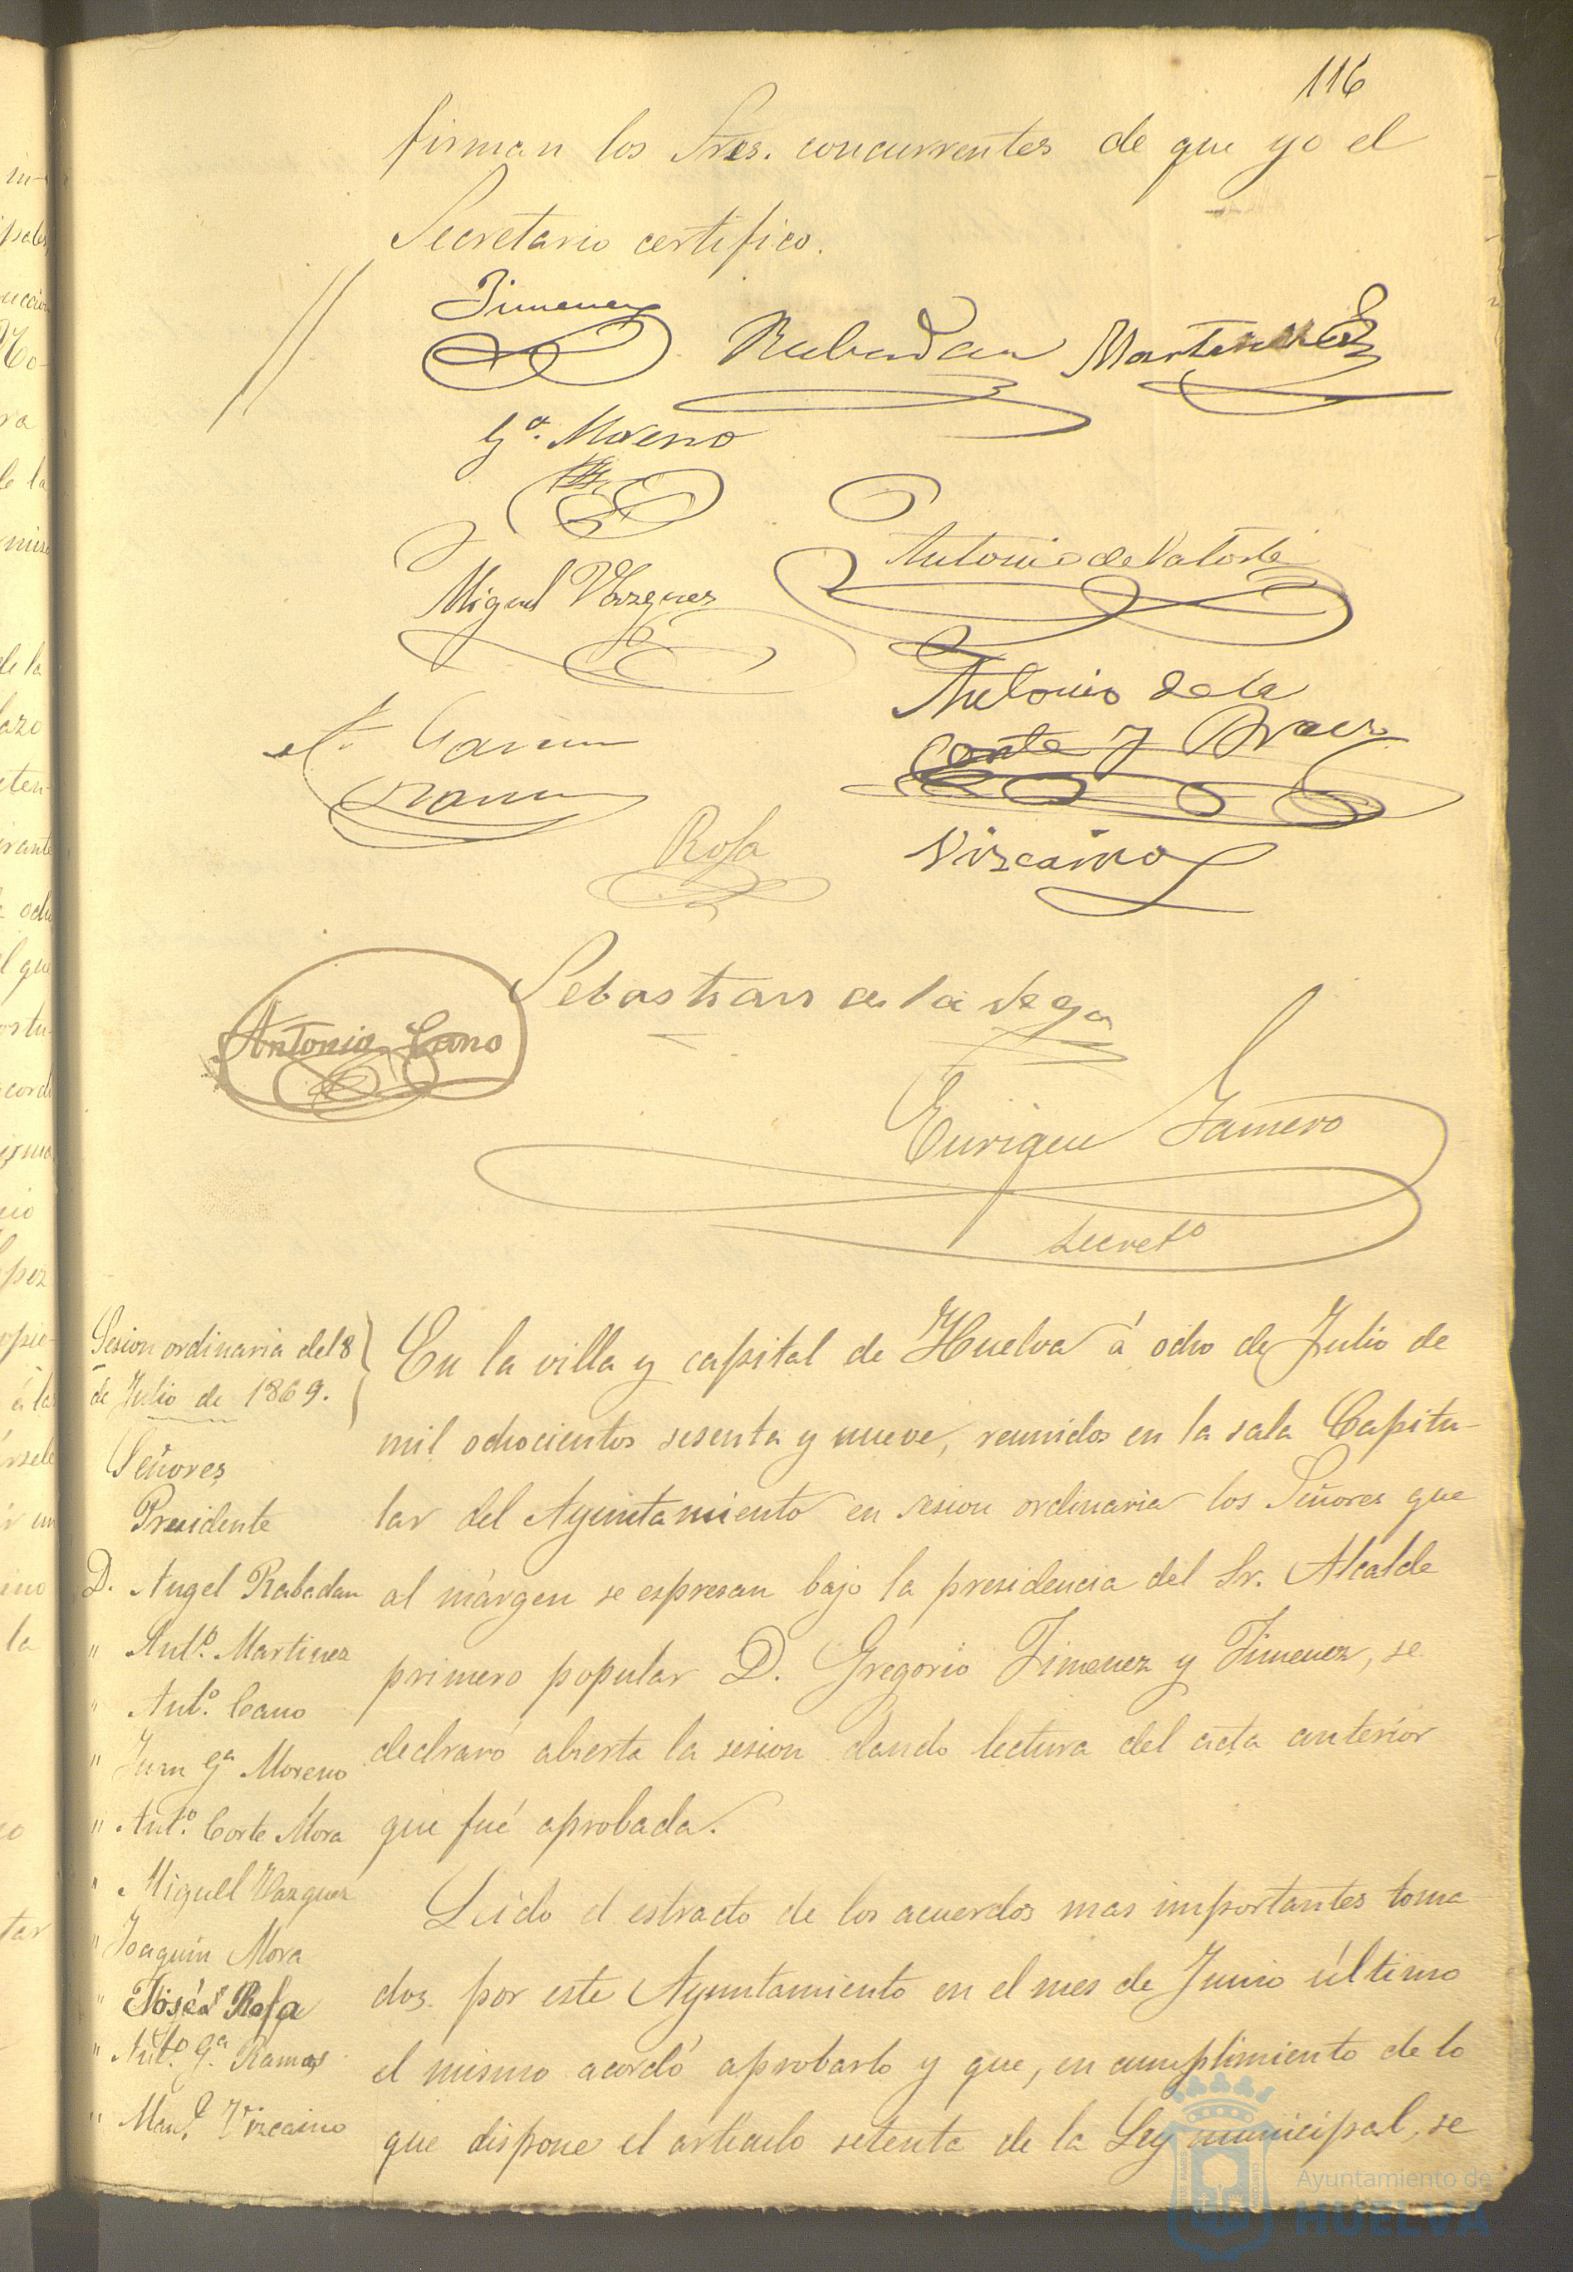 116
firman los Sres. concurrentes de que yo el
Secretario certifico.
Jimenez
Rabadan
Martinez
Gª. Moreno
Antonio de la Torre
Miguel Vazquez
Antonio de la
Corte y Braez
Aº Garcia
Ramos
Rofa
Vizcaino
Sebastian de la Vega
Antonio Cano
Enrique
Secretº
Sesion ordinaria del 8
de Julio de 1869.
Señores
Presidente
D. Angel Rabadan
" Antº. Martinez
" Antº. Cano
" Juan Gª Moreno
" Antº. Corte Mora
" Miguel Vazquez
" Joaquin Mora
" José Mª Rofa
" Antº. Gª. Ramos
" Manl. Vizcaino
En la villa y capital de Huelva á ocho de Julio de
mil ochocientos sesenta y nueve, reunidos en la sala Capitu-
lar del Ayuntamiento en sesion ordinaria los Señores que
al márgen se espresan bajo la presidencia del Sr. Alcalde
primero popular D. Gregorio Jimenez y Jimenez, se
declraró abierta la sesion dando lectura del acta anterior
que fué aprobada.
Leido el estracto de los acuerdos mas importantes toma
dos por este Ayuntamiento en el mes de Junio último
el mismo acordó aprobarlo y que, en cumplimiento de lo
que dispone el artículo setenta de la Ley municipal, se
Ayuntamiento de
HUELVA